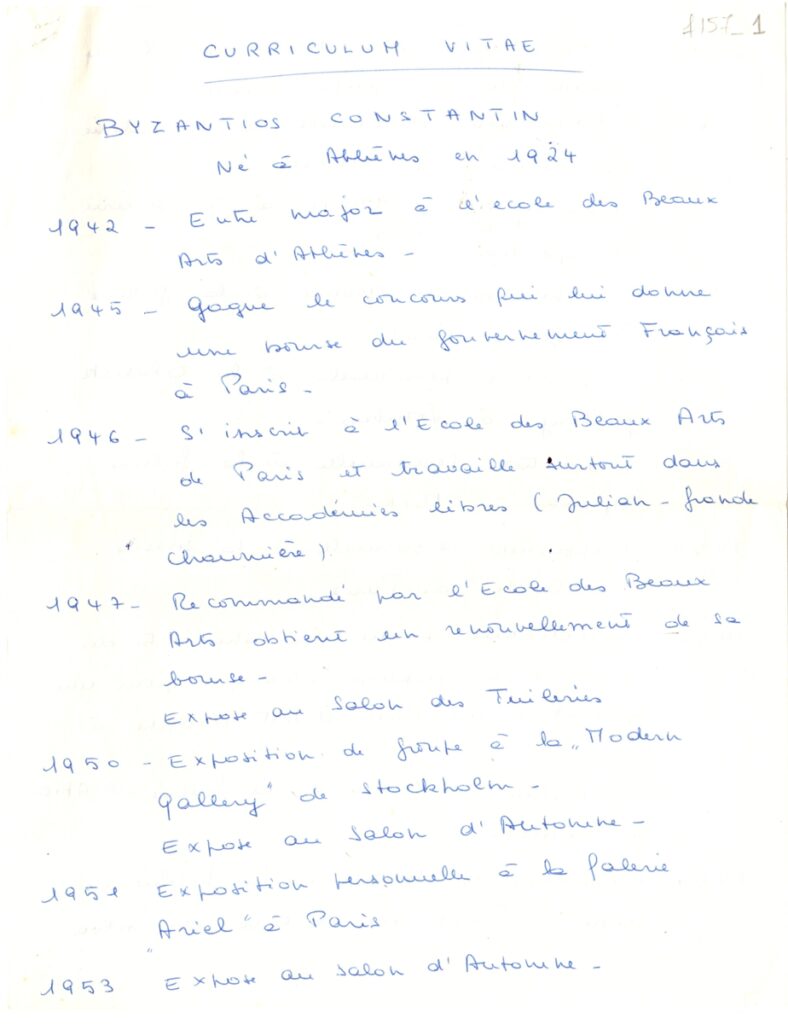 1157_1
CURRICULUM VITAE
BYZANTIOS CONSTANTIN
Né à Athènes en 1924
1942 - Entre major à l'ecole des Beaux
Arts d'Athènes -
1945 - Gagne le concours qui lui donne
une bourse du gouvernement Français
à Paris -
1946 - S'inscrit à l'Ecole des Beaux Arts
de Paris et travaille surtout dans
les Accadémies libres (Julian - grande
Chaumière)
1947 - Recommandé par l'Ecole des Beaux
Arts obtient un renouvellement de sa
bourse -
Expose au Salon des Tuileries
1950 - Exposition de groupe à la "Modern
gallery" de Stockholm -
Expose au Salon d'Automne -
1951 Exposition personnelle à la Galerie
"Ariel" à Paris
1953 Expose au Salon d'Automne -